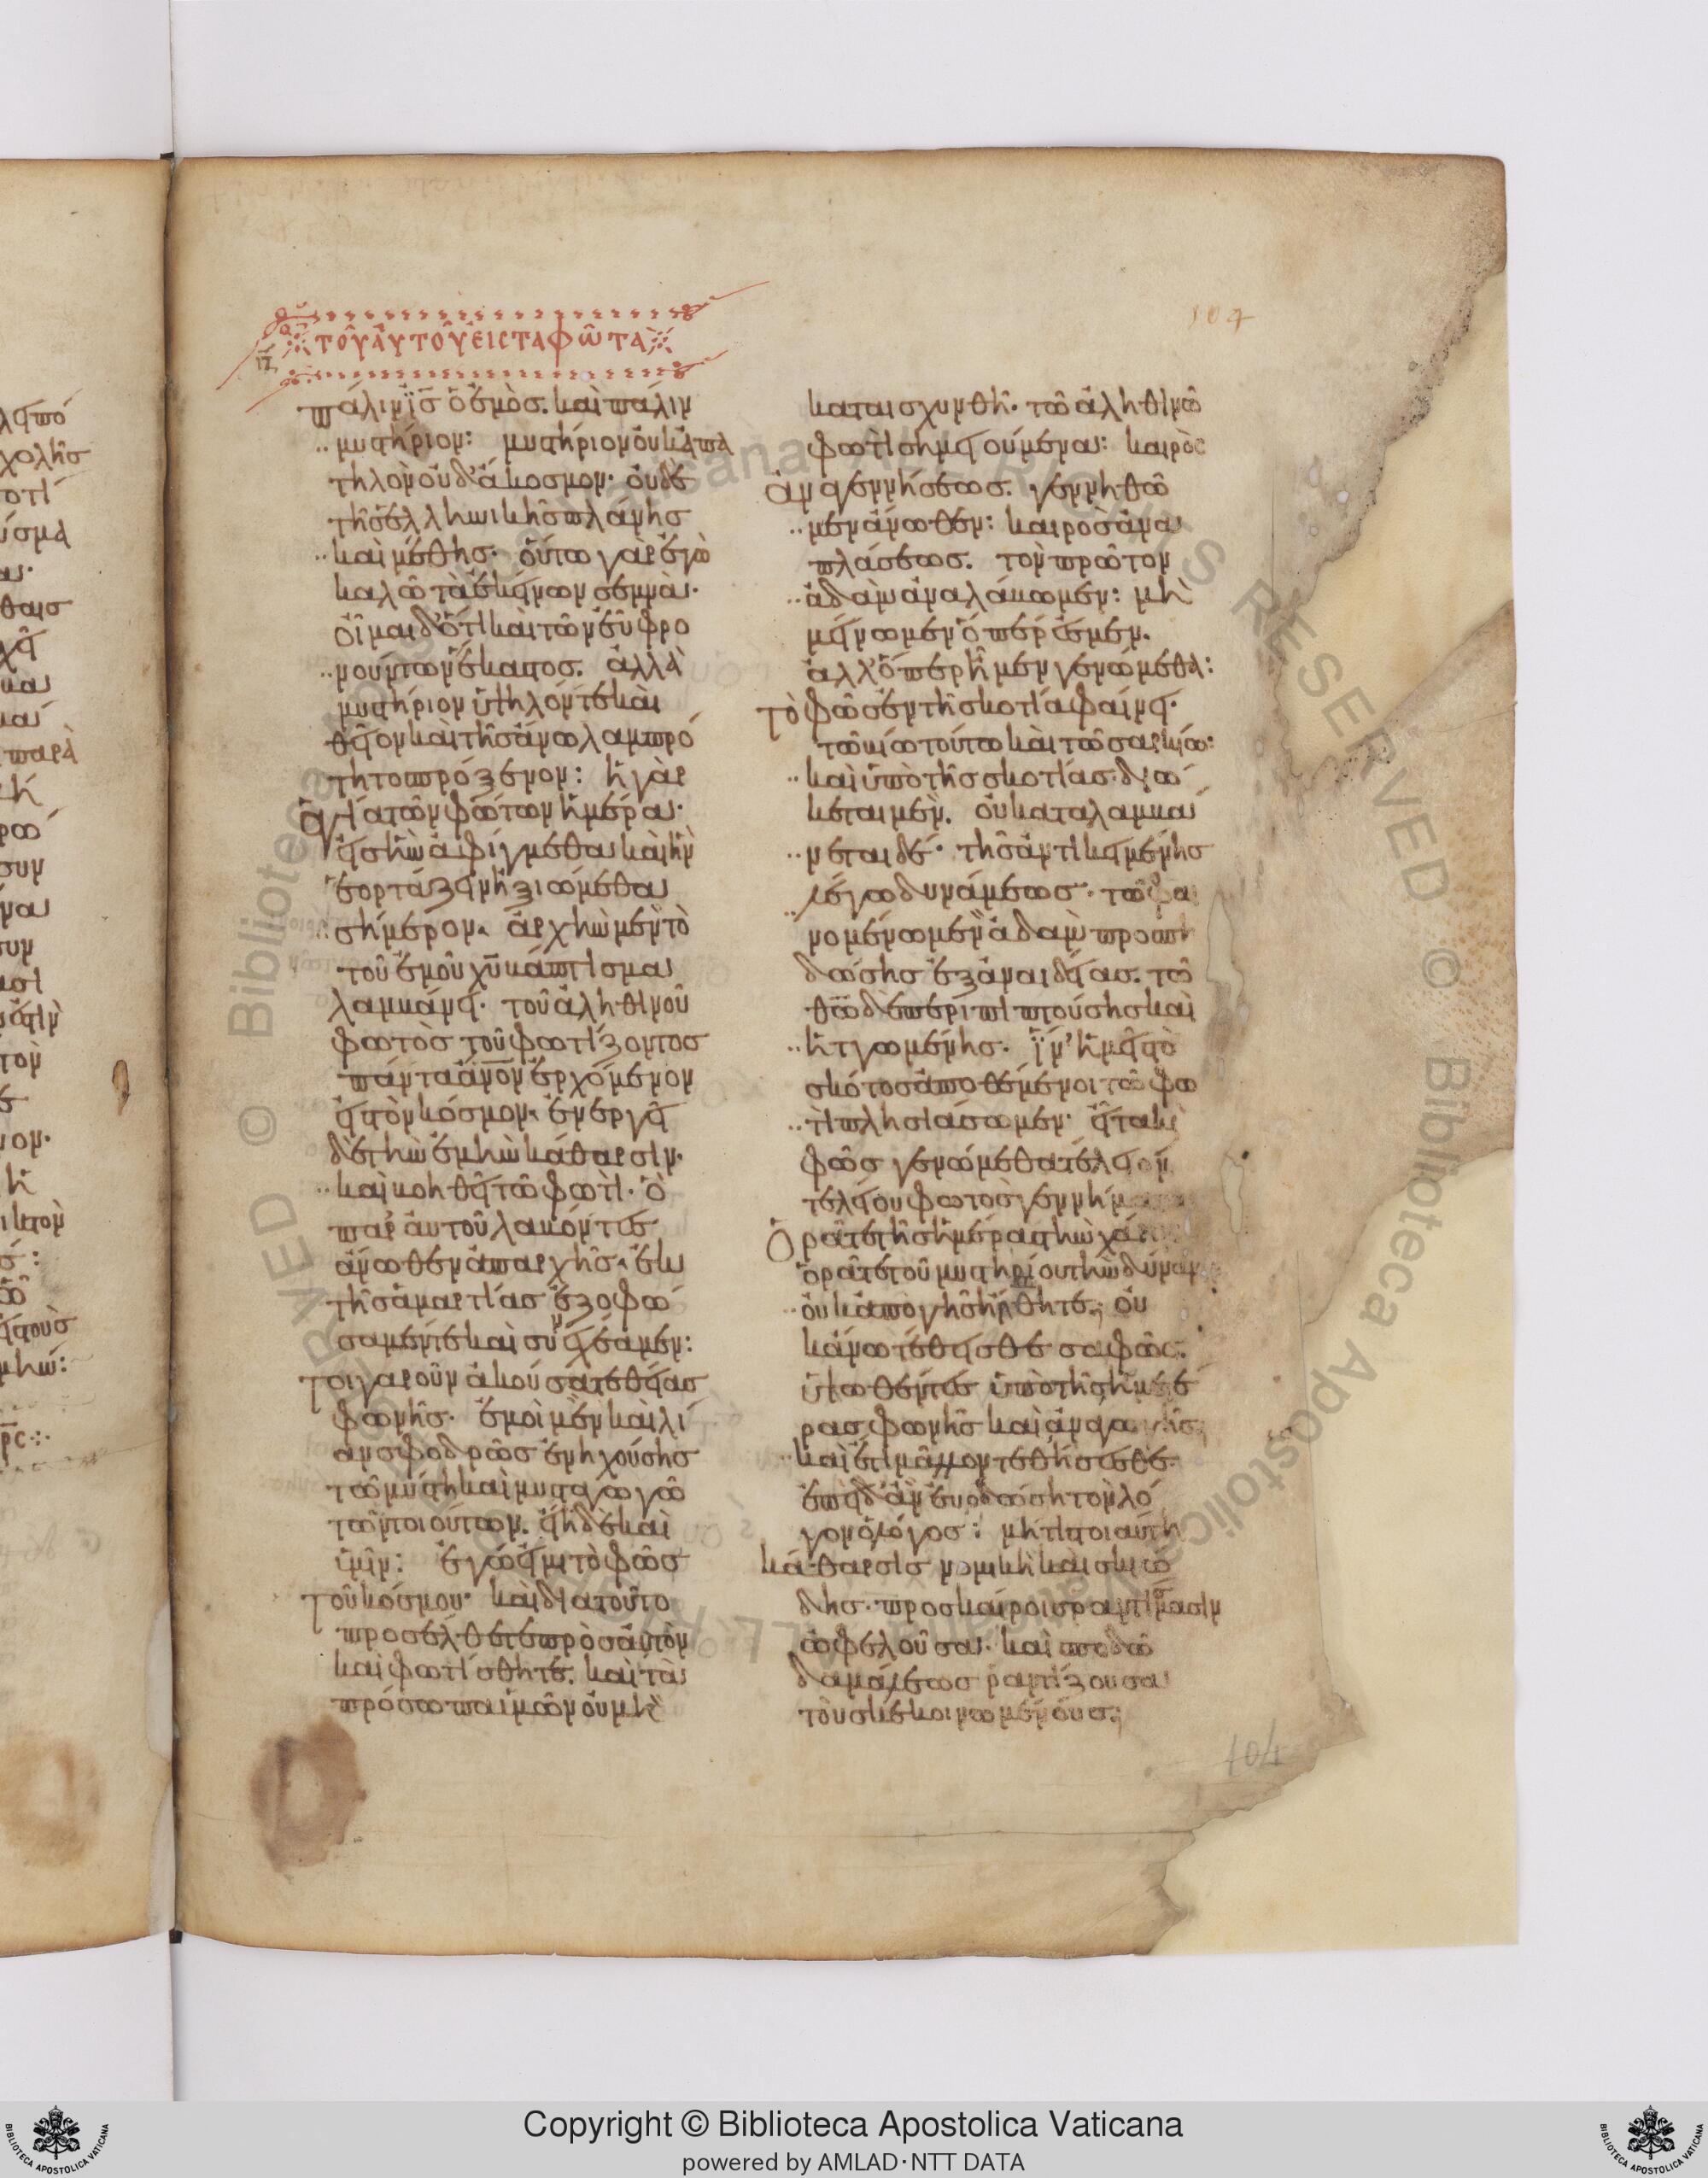 τοῦ αὐτοῦ εἰς τὰ φῶτα
πάλιν ις̅ ὁ ἐμὸσ. καὶ πάλιν
μυστήριον: μυστήριον οὐκ ἀπα
τηλὸν οὐδ' ἄκοσμον· οὐδὲ
τῆς ἑλληνικῆς πλάνησ
καὶ μέθης· οὕτω γὰρ ἐγὼ
καλῶ τὰ ἐκείνων σεμνὰ·
οἶμαι δ' ὅτι καὶ τῶν εὖ φρο
νούντων ἕκαστοσ. ἀλλὰ
μυστήριον ὑψηλόν τε καὶ
θεῖον καὶ τῆς ἄνω λαμπρό
τητος πρόξενον: ἡ γὰρ
ἁγία τῶν φώτων ἡμέρα·
εἰς ἣν ἀφίγμεθα καὶ ἣν
ἑορτάζειν ἠξιώμεθα
σήμερον· ἀρχὴν μὲν τὸ
τοῦ ἐμοῦ χυ̅ βάπτισμα
λαμβάνει· τοῦ ἀληθινοῦ
φωτὸσ τοῦ φωτίζοντοσ
πάντα ἄνον̅ ἐρχόμενον
εἰς τὸν κόσμον· ἐνεργεῖ
δὲ τὴν ἐμὴν κάθαρσιν·
καὶ βοηθεῖ τῶ φωτὶ· ὃ
παρ' αὐτοῦ λαβόντεσ
ἄνωθεν ἀπαρχῆς· ἐκ
τῆς ἁμαρτίασ ἐζοφώ
σαμέν τε καὶ συνεχέαμεν:
τοιγαροῦν ἀκούσατε θείασ
φωνῆσ· ἐμοὶ μὲν καὶ λί
αν σφοδρῶσ ἐνηχούσησ
τῶ μύστη καὶ μυσταγωγῶ
τῶν τοιούτων. εἴη δὲ καὶ
ὑμῖν: ἐγώ εἰμι τὸ φῶσ
τοῦ κόσμου· καὶ διατοῦτο
προσέλθετε πρὸσ αὐτὸν
καὶ φωτίσθητε. καὶ τὰ
πρόσωπα ὑμῶν οὐ μὴ
104
καταισχυνθῆ· τῶ ἀληθινῶ
φωτὶ σημειούμενα: καιρὸς
ἀναγεννήσεωσ. γεννηθῶ
μεν ἄνωθεν: καιρὸσ ἀνα
πλάσεωσ. τὸν πρῶτον
ἀδαμ ἀναλάβωμεν: μὴ
μείνωμεν ὅπερ ἐσμεν.
ἀλλ' ὅπερ ἦμεν γενώμεθα:
τὸ φῶσ ἐν τῆ σκοτία φαίνει·
τῶ βίω τούτω καὶ τῶ σαρκίω:
καὶ ὑπὸ τῆσ σκοτίασ διώ
κεται μὲν. οὐ καταλαμβά
νεται δέ· τῆσ ἀντικειμένησ
λέγω δυνάμεωσ· τῶ φαι
νομένω μὲν ἀδαμ προσπη
δώσησ ἐξ ἀναιδείασ. τῶ
θῶ̅ δὲ περιπιπτούσησ καὶ
ἡττωμένησ. ἵν' ἡμεῖσ τὸ
σκότοσ ἀποθέμενοι τῶ φω
τὶ πλησιάσωμεν· εἶτα καὶ
φῶσ γενώμεθα τέλειον
τελείου φωτὸσ γεννήματα
ὁρᾶτε τῆσ ἡμέρασ τὴν χάριν
ὁρᾶτε τοῦ μυστηρίου τὴν δύναμιν
οὐκ ἀπὸ γῆσ ἤρθητε; οὐ
κ ἄνω τέθεισθε σαφῶς.
ὑψωθέντεσ ὑπὸ τῆσ ἡμετέ
ρασ φωνῆσ καὶ ἀναγωγῆς;
καὶ ἔτι μᾶλλον τεθήσεσθε·
ἐπειδ' ἂν εὐοδώση τὸν λό
γον ὁ λόγοσ: μήτισ τοιαύτη
κάθαρσισ νομικὴ καὶ σκιώ
δησ. προσκαίροισ ῥαντίσμασιν
ὠφελοῦσα. καὶ σποδῶ
δαμάλεωσ ῥαντίζουσα
τοὺσ κεκοινωμένουσ;
104
Copyright © Biblioteca Apostolica Vaticana
powered by AMLAD·NTT DATA